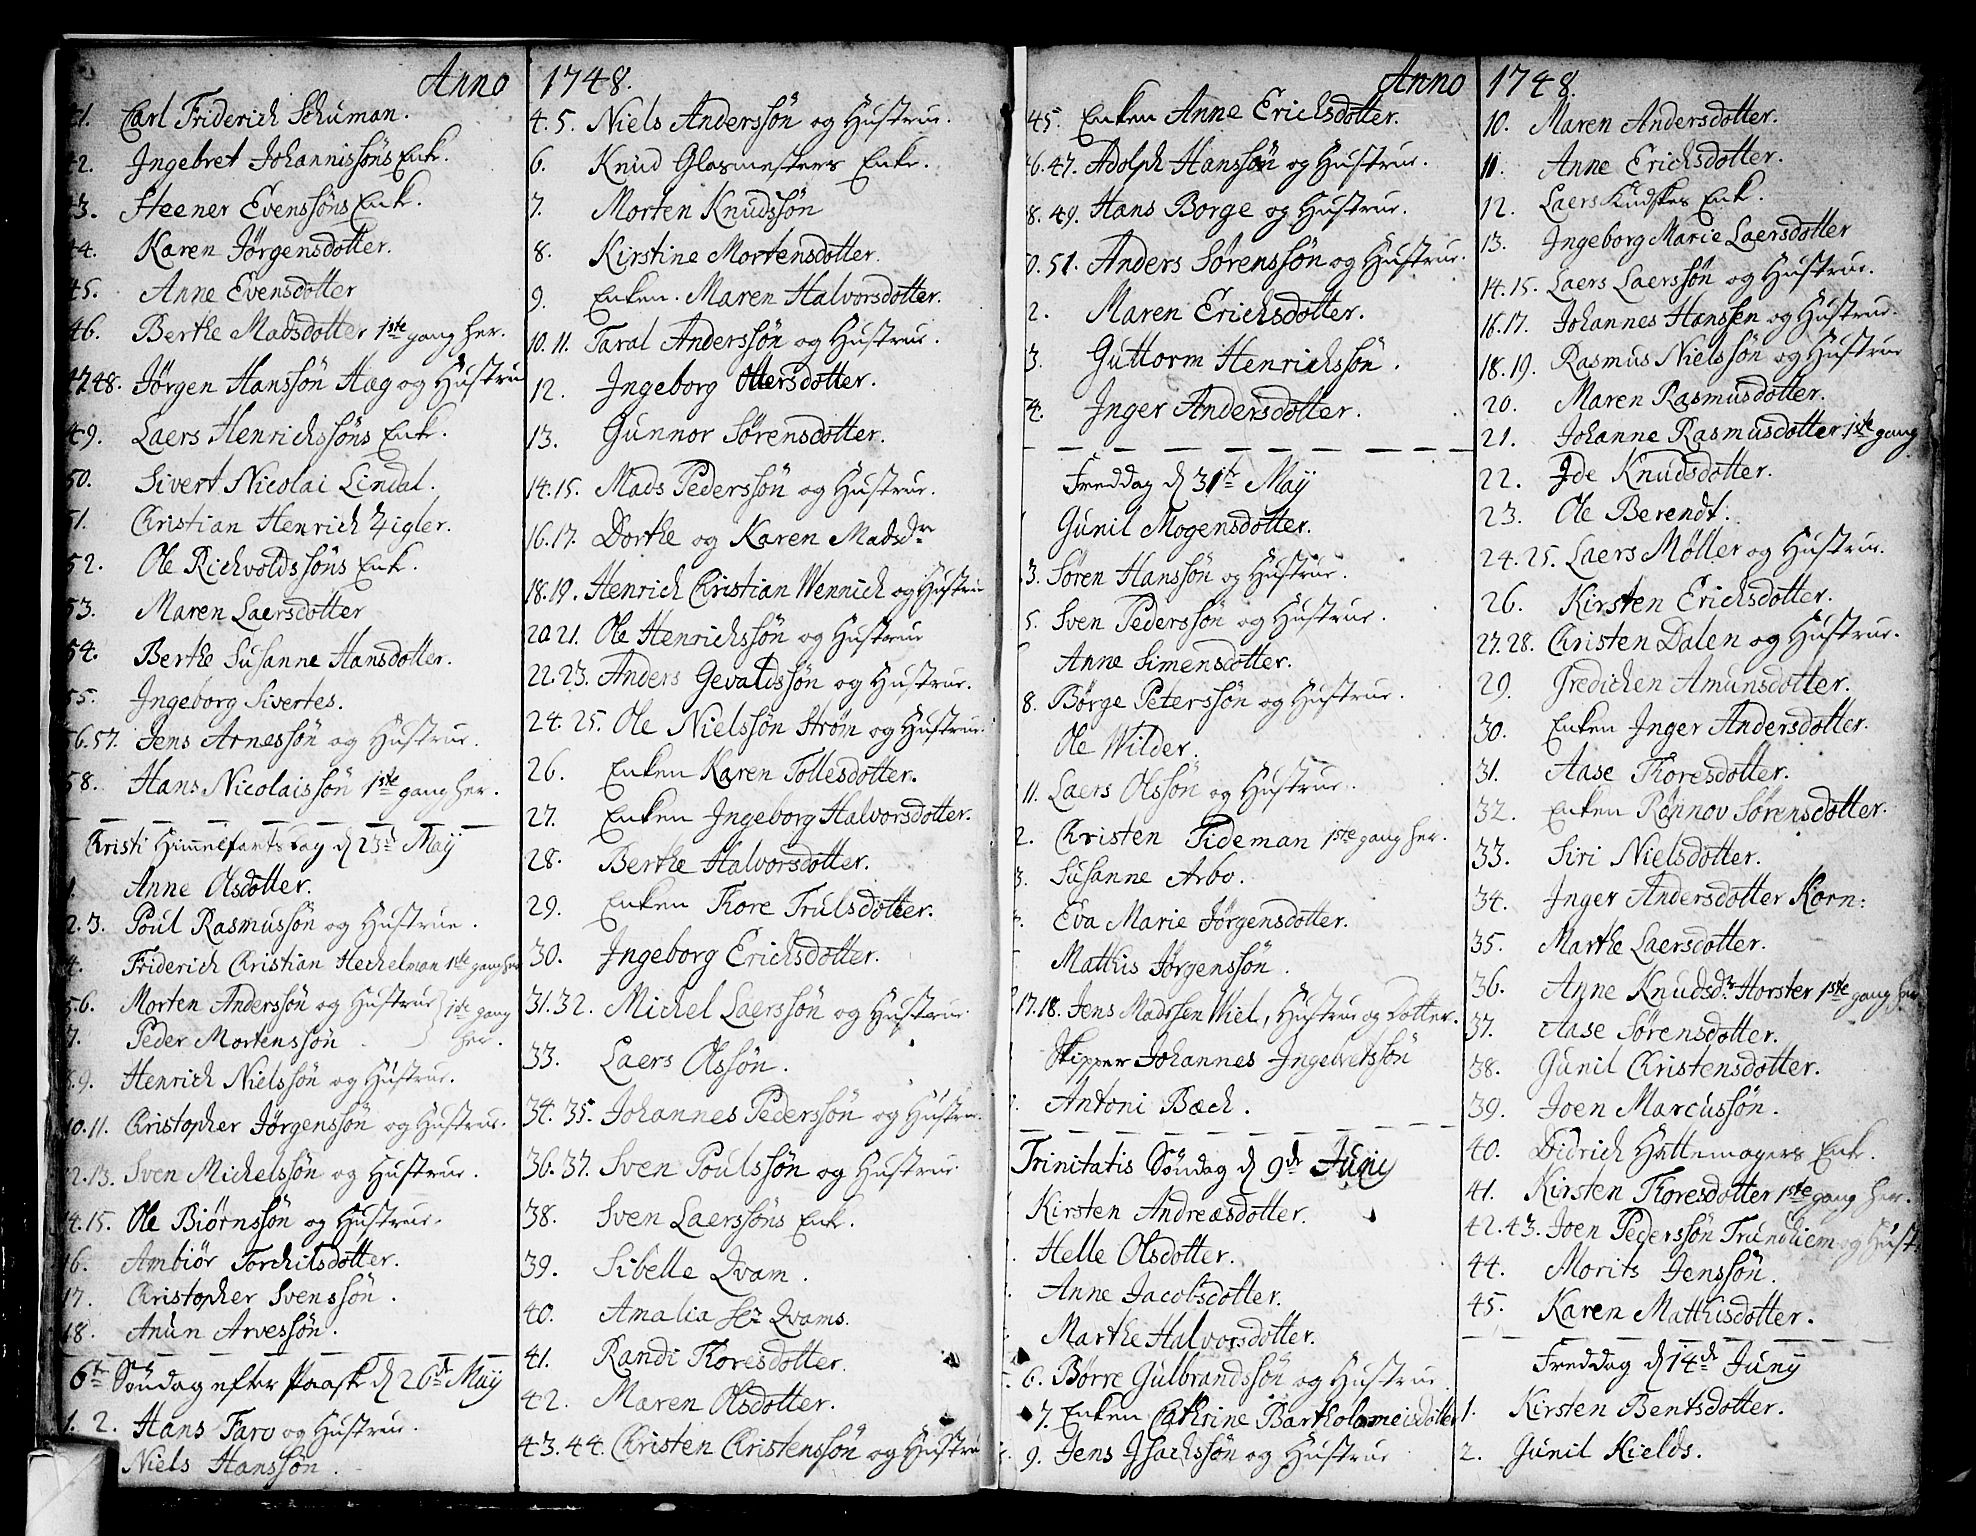 Anno 1748.
41. Carl Friderich Schuman.
42. Ingebret Johannissöns Enk.
43. Steener Evenssöns Enk.
44. Karen Jörgensdotter.
45. Anne Evensdotter
46. Berthe Madsdotter 1ste gang her.
47.48. Jörgen Hanssön Hæg og Hustru
49. Laers Henrichssöns Enk.
50. Sivert Nicolai Lindal.
51. Christian Henrich Zigler.
52. Ole Richvoldssöns Enk.
53. Maren Laersdotter
54. Berthe Susanne Hansdotter.
55. Ingeborg Sivertes.
56.57. Jens Arnessön og Hustrue.
58. Hans Nicolaissön 1ste gang her.
Christi Himmelfarts Dag d 23d Maÿ
1. Anne Olsdotter.
2.3. Poul Rasmussön og Hustrue.
4. Friderich Christian Hechelman 1ste gang her
5.6. Morten Anderssön og Hustrue 1ste gang
7. Peder Mortenssön her.
8.9. Henrich Nielssön og Hustrue.
10.11. Christopher Jörgenssön og Hustrue.
12.13. Sven Michelssön og Hustrue.
14.15. Ole Biörnssön og Hustrue.
16. Ambiör Torchilsdotter.
17. Christopher Svenssön.
18. Anun Arvessön.
6te Söndag efter Paask d 26de Maÿ
1. 2. Hans Faro og Hustrue.
Niels Hanssön.
4.5. Niels Anderssön og Hustrue.
6. Knud Glasmesters Enke.
7. Morten Knudssön
8. Kirstine Mortensdotter.
9. Enken. Maren Halvorsdotter.
10.11. Taral Anderssön og Hustrue.
12. Ingeborg Ottersdotter.
13. Gunnor Sörensdotter.
14.15. Mads Pederssön og Hustrue.
16.17. Dorthe og Karen Madsdr
18.19. Henrich Christian Wennich og Hustru
20 21. Ole Henrichssön og Hustrue
22.23. Anders Gevaldssön og Hustrue.
24.25. Ole Nielssön Ström og Hustrue.
26. Enken Karen Tollesdotter.
27. Enken Ingeborg Halvorsdotter.
28. Berthe Halvorsdotter.
29. Enken Thore Trulsdotter.
30. Ingeborg Erichsdotter.
31.32. Michel Laerssön og Hustrue
33. Laers Olssön.
34.35. Johannes Pederssön og Hustrue.
36.37. Sven Poulssön og Hustrue
38. Sven Laerssöns Enk.
39. Sibelle Qvam.
40. Amalia Sr Qvams.
41. Randi Thoresdotter.
42. Maren Olsdotter.
43.44. Christen Christenssön og Hustru
Anno 1748.
45. Enken Anne Erichsdotter.
6.47. Adolph Hanssön og Hustrue.
8.49. Hans Borge og Hustrue.
0.51. Anders Sörenssön og Hustrue.
2. Maren Erichsdotter.
3. Guttorm Henrichssön.
4. Inger Andersdotter.
Freddag d 31te Maÿ
Gunil Mogensdotter.
3. Sören Hanssön og Hustrue.
5. Sven Pederssön og Hustrue.
Anne Simensdotter.
8. Börge Peterssön og Hustrue.
Ole Wilder.
11. Laers Olssön og Hustrue.
2. Christen Tideman 1ste gang her.
3. Susanne Arbo.
Eva Marie Jörgensdotter.
Matthis Jörgenssön.
17.18. Jens Madssen Wiel, Hustrue og Dotter.
Skipper Johannes Ingebretssön
Antoni Bæch.
Trinitatis Söndag d 9de Juny
Kirsten Andreæsdotter.
Helle Olsdotter.
Anne Jacobsdotter.
Marthe Halvorsdotter.
6. Börre Gulbrandssön og Hustrue
7. Enken Cathrine Bartholomeisdotter
9. Jens Isachssön og Hustrue
10. Maren Andersdotter.
11. Anne Erichsdotter.
12. Laers Kudskes Enk.
13. Ingeborg Marie Laersdotter
14.15. Laers Laerssön og Hustrue.
16.17. Johannes Hanssen og Hustrue.
18.19. Rasmus Nielssön og Hustrue
20. Maren Rasmusdotter.
21. Johanne Rasmusdotter 1ste gang
22. Ide Knudsdotter.
23. Ole Berendt.
24.25. Laers Möller og Hustrue.
26. Kirsten Erichsdotter.
27.28. Christen Dalen og Hustrue.
29. Gredichen Amunsdotter.
30. Enken Inger Andersdotter.
31. Aase Thoresdotter.
32. Enken Rönnov Sörensdotter.
33. Siri Nielsdotter.
34. Inger Andersdotter Korn:
35. Marthe Laersdotter.
36. Anne Knudsdr Horster 1ste gang her.
37. Aase Sörensdotter.
38. Gunil Christensdotter.
39. Joen Marcussön.
40. Didrich Hattemagers Enk.
41. Kirsten Thoresdotter 1ste gang her.
42.43. Joen Pederssön Trundhiem og Hust.
44. Morits Jenssön.
45. Karen Matthisdotter.
Freddag d 14de Junÿ
1. Kirsten Bentsdotter.
2. Gunil Kields.